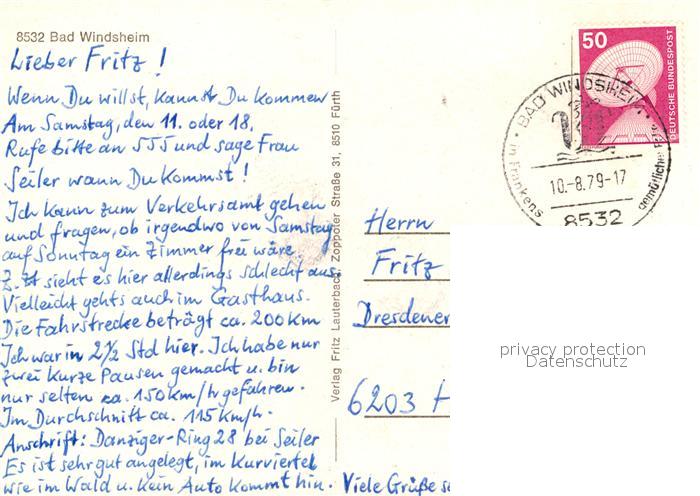 8532 Bad Windsheim
Lieber Fritz!
Wenn Du willst, kannst Du kommen
Am Samstag, den 11. oder 18.
Rufe bitte an 555 und sage Frau
Seiler wann Du kommst!
Ich kann zum Verkehrsamt gehen
und fragen, ob irgendwo von Samstag
auf Sonntag ein Zimmer frei wäre.
Z. Zt sieht es hier allerdings schlecht aus.
Vielleicht gehts auch im Gasthaus.
Die Fahrstrecke beträgt ca. 200 km
Ich war in 2 1/2 Std hier. Ich habe nur
zwei kurze Pausen gemacht u. bin
nur selten ca. 150 km/h gefahren.
Im Durchschnitt ca. 115 km/h.
Anschrift: Danziger-Ring 28 bei Seiler
Es ist sehr gut angelegt, im Kurviertel
wie im Wald u. kein Auto kommt hin.
Viele Grüße
Verlag Fritz Lauterbach, Zoppoter Straße 31, 8510 Fürth
50
DEUTSCHE BUNDESPOST
BAD WINDSHEIM
in Frankens gemütlicher
10.-8.79-17
8532
Herrn
Fritz
Dresdener
6203 H
privacy protection
Datenschutz